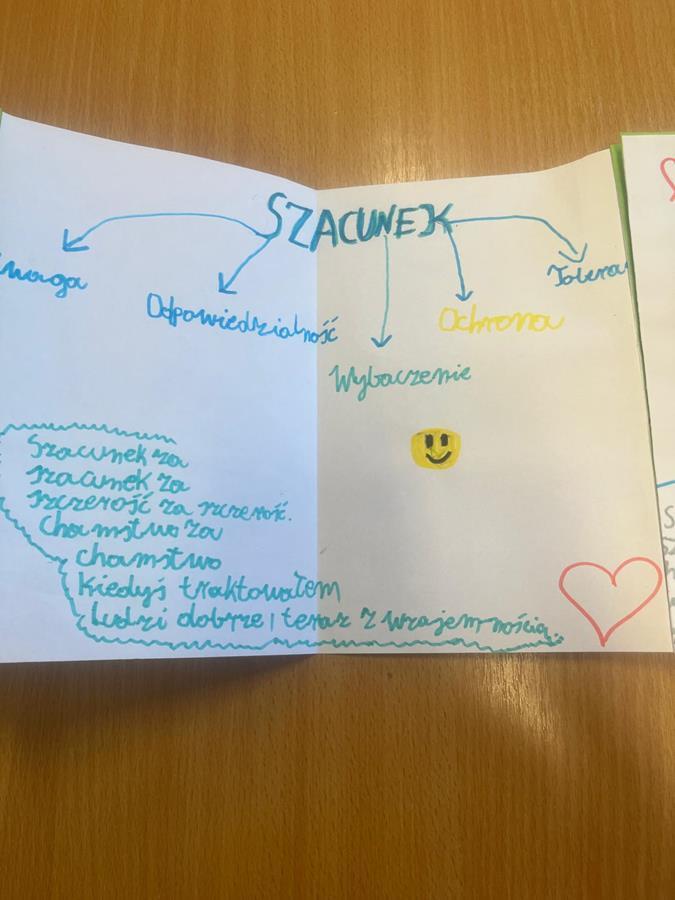 SZACUNEK
waga
Odpowiedzialność
Wybaczenie
Ochrona
Tolera
Szacunek za
szacunek za
szczerość za szczerość.
Chamstwo za
chamstwo
Kiedyś traktowałem
ludzi dobrze, teraz z wzajemnością